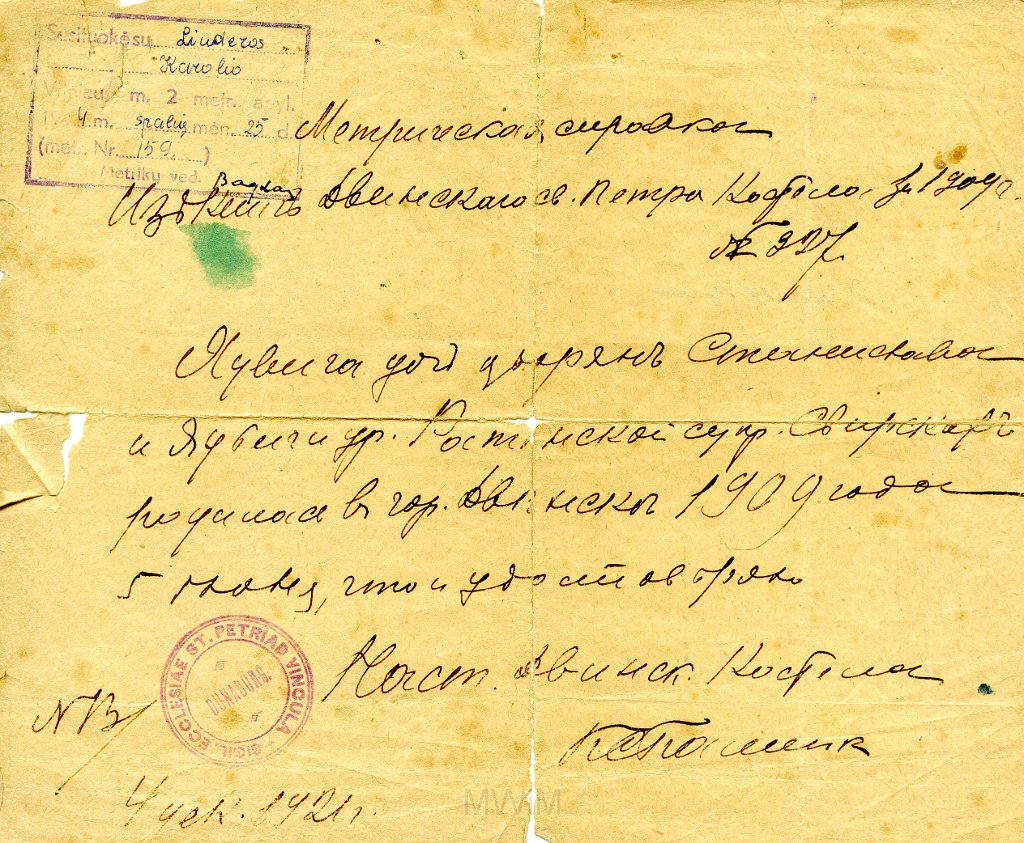 Susituokėsų Linderos
Karolio
Vilniaus m. 2 metr. apyl.
194 m. spalių mėn. 25 d.
(met. Nr. 159 )
Metrikų ved. Bagdan
Метрическая справка
Изъ книгъ Двинскаго св. Петра Костела за 1909 г.
№ 227.
Ядвига дочь дворянъ Станислава
и Ядвиги ур. Ростинской супр. Свирскихъ
родилась въ гор. Двинскѣ 1909 года
5 июня, что и удостоверяю
Наст. Двинск. Костела
SIGIL. ECCLESIAE ST. PETRI AD VINCULA
DUNABURG.
NB/
4 дек. 1921 г.
MWM